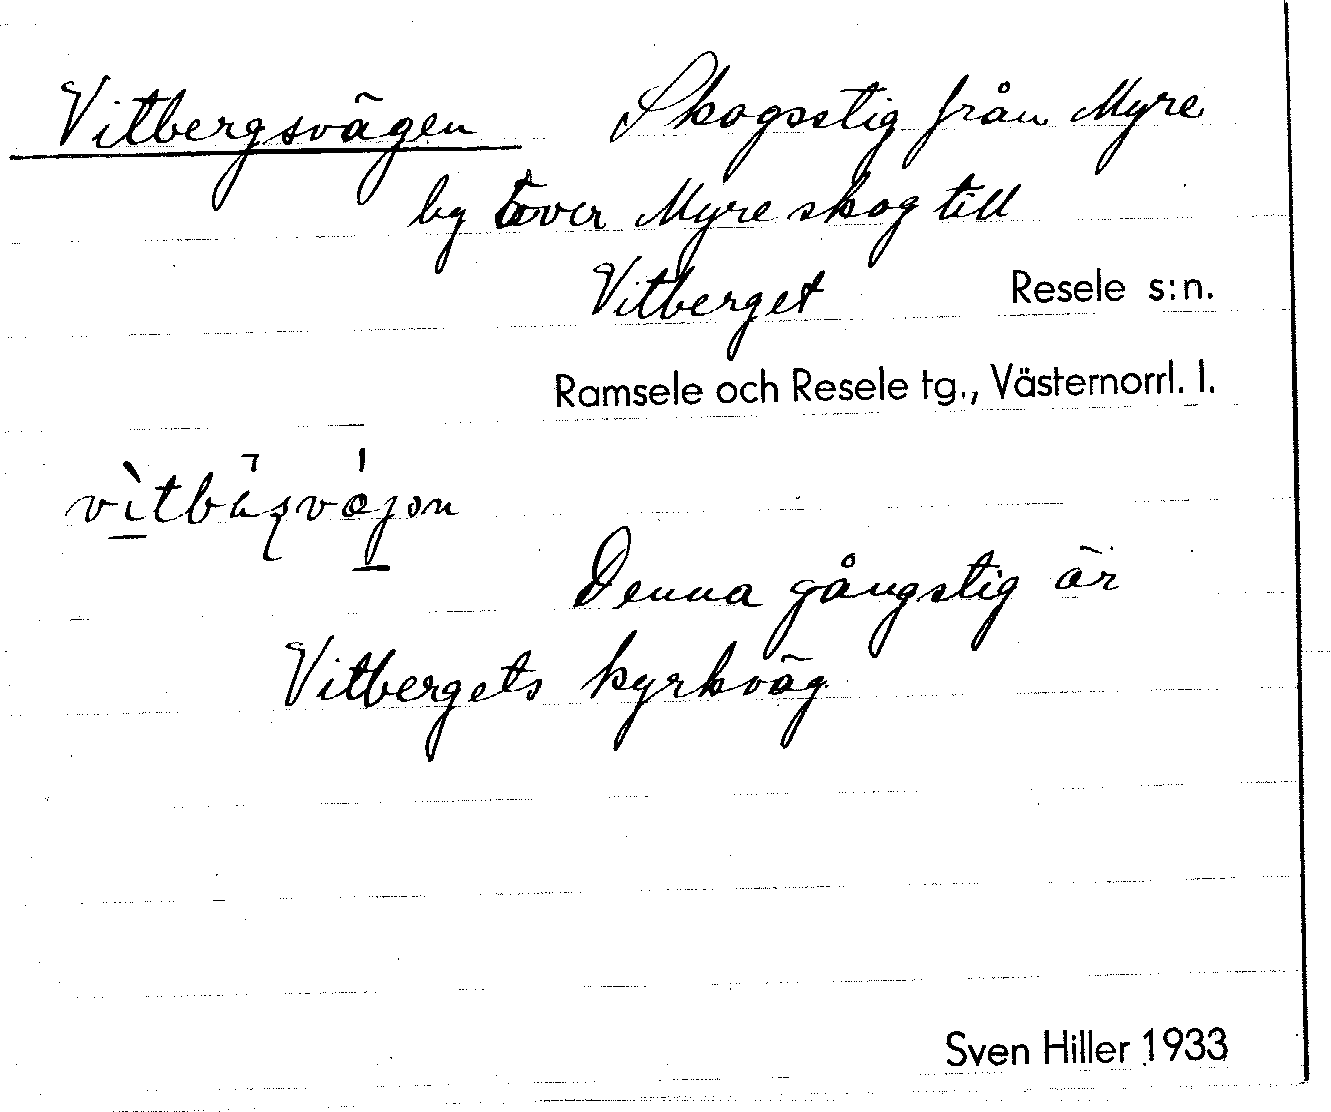 Vitbergsvägen Skogsstig från Myre
by över Myre skog till
Vitberget Resele s:n.
Ramsele och Resele tg., Västernorrl. l.
Denna gångstig är
Vitbergets kyrkväg
Sven Hiller 1933